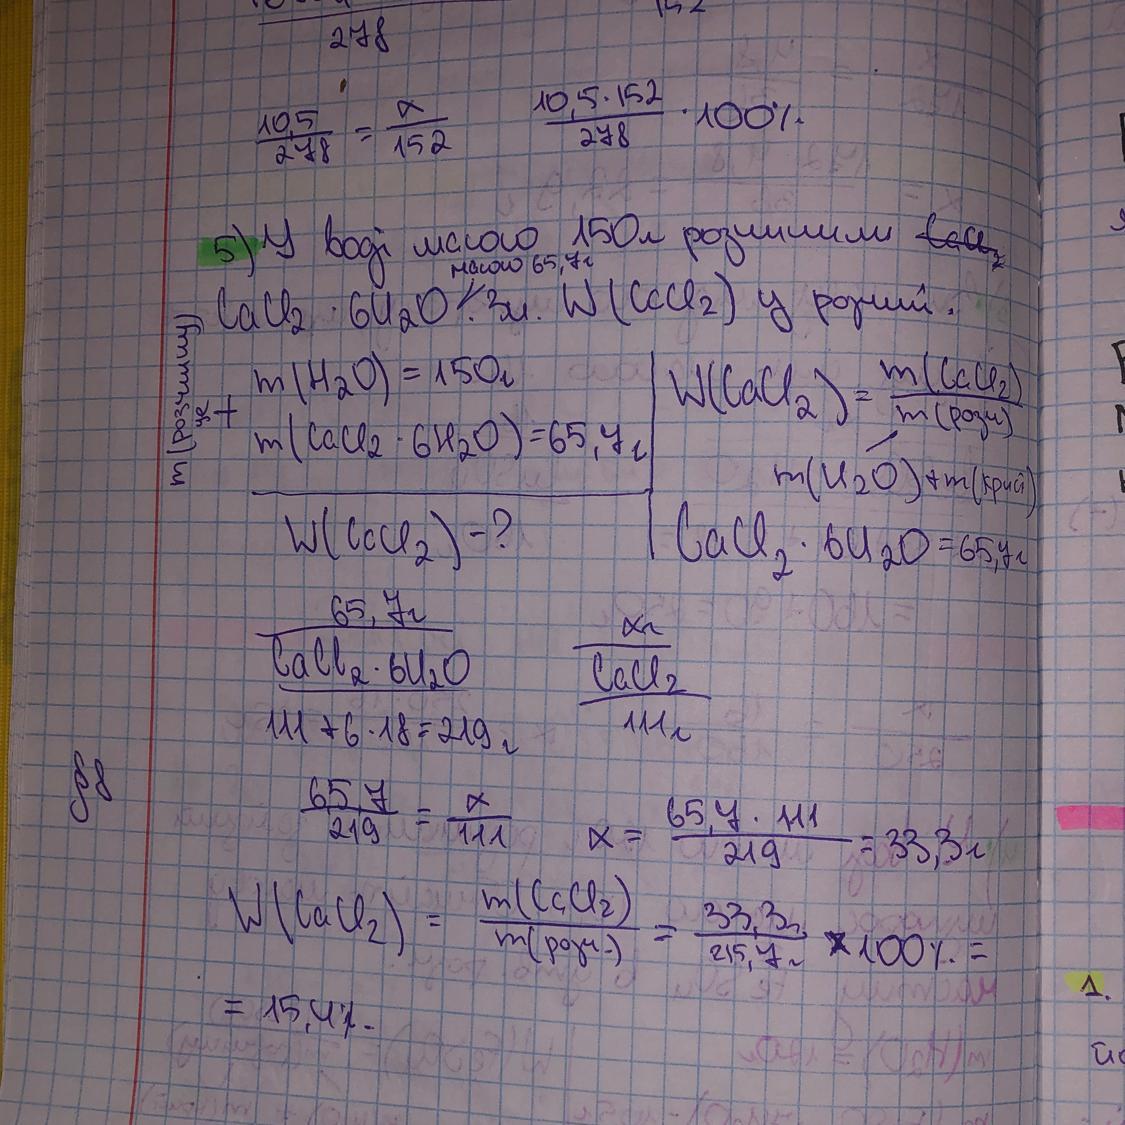 278
152
10,5/278 = x/152   10,5·152/278 · 100%
5) У воді масою 150г розчинили CaCl2
масою 65,7г
CaCl2 · 6H2O. Зн. W(CaCl2) у розчині.
m(розчину)
це +
m(H2O) = 150г
m(CaCl2 · 6H2O) = 65,7г
W(CaCl2) - ?
W(CaCl2) = m(CaCl2)/m(розч)
m(H2O) + m(крист)
CaCl2 · 6H2O = 65,7г
65,7г   xг
CaCl2 · 6H2O   CaCl2
111 + 6 · 18 = 219г   111г
65,7/219 = x/111   x = 65,7 · 111/219 = 33,3г
W(CaCl2) = m(CaCl2)/m(розч.) = 33,3г/215,7г × 100% =
= 15,4%.
1.